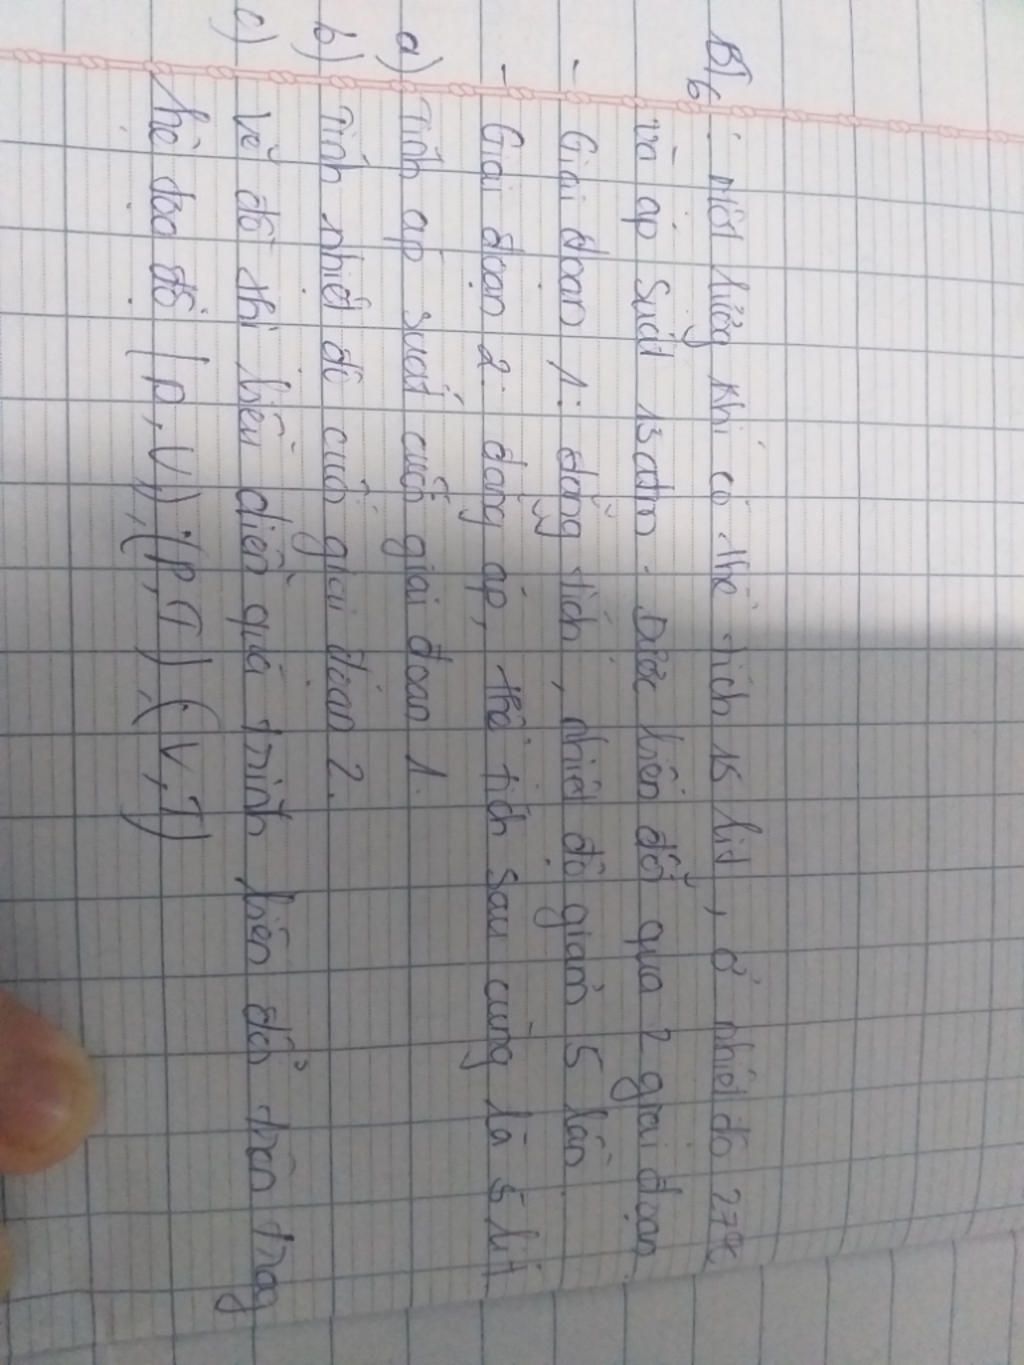 B6: Một lượng khí có thể tích 15 lít, ở nhiệt độ 27°C
và áp suất 13 atm. Được biến đổi qua 2 giai đoạn
- Giai đoạn 1: đẳng tích, nhiệt độ giảm 5 lần
- Giai đoạn 2: đẳng áp, thể tích sau cùng là 5 lít
a) Tính áp suất cuối giai đoạn 1.
b) Tính nhiệt độ cuối giai đoạn 2.
c) Vẽ đồ thị biểu diễn quá trình biến đổi trên trong
hệ tọa độ (p,V), (p,T), (V,T)